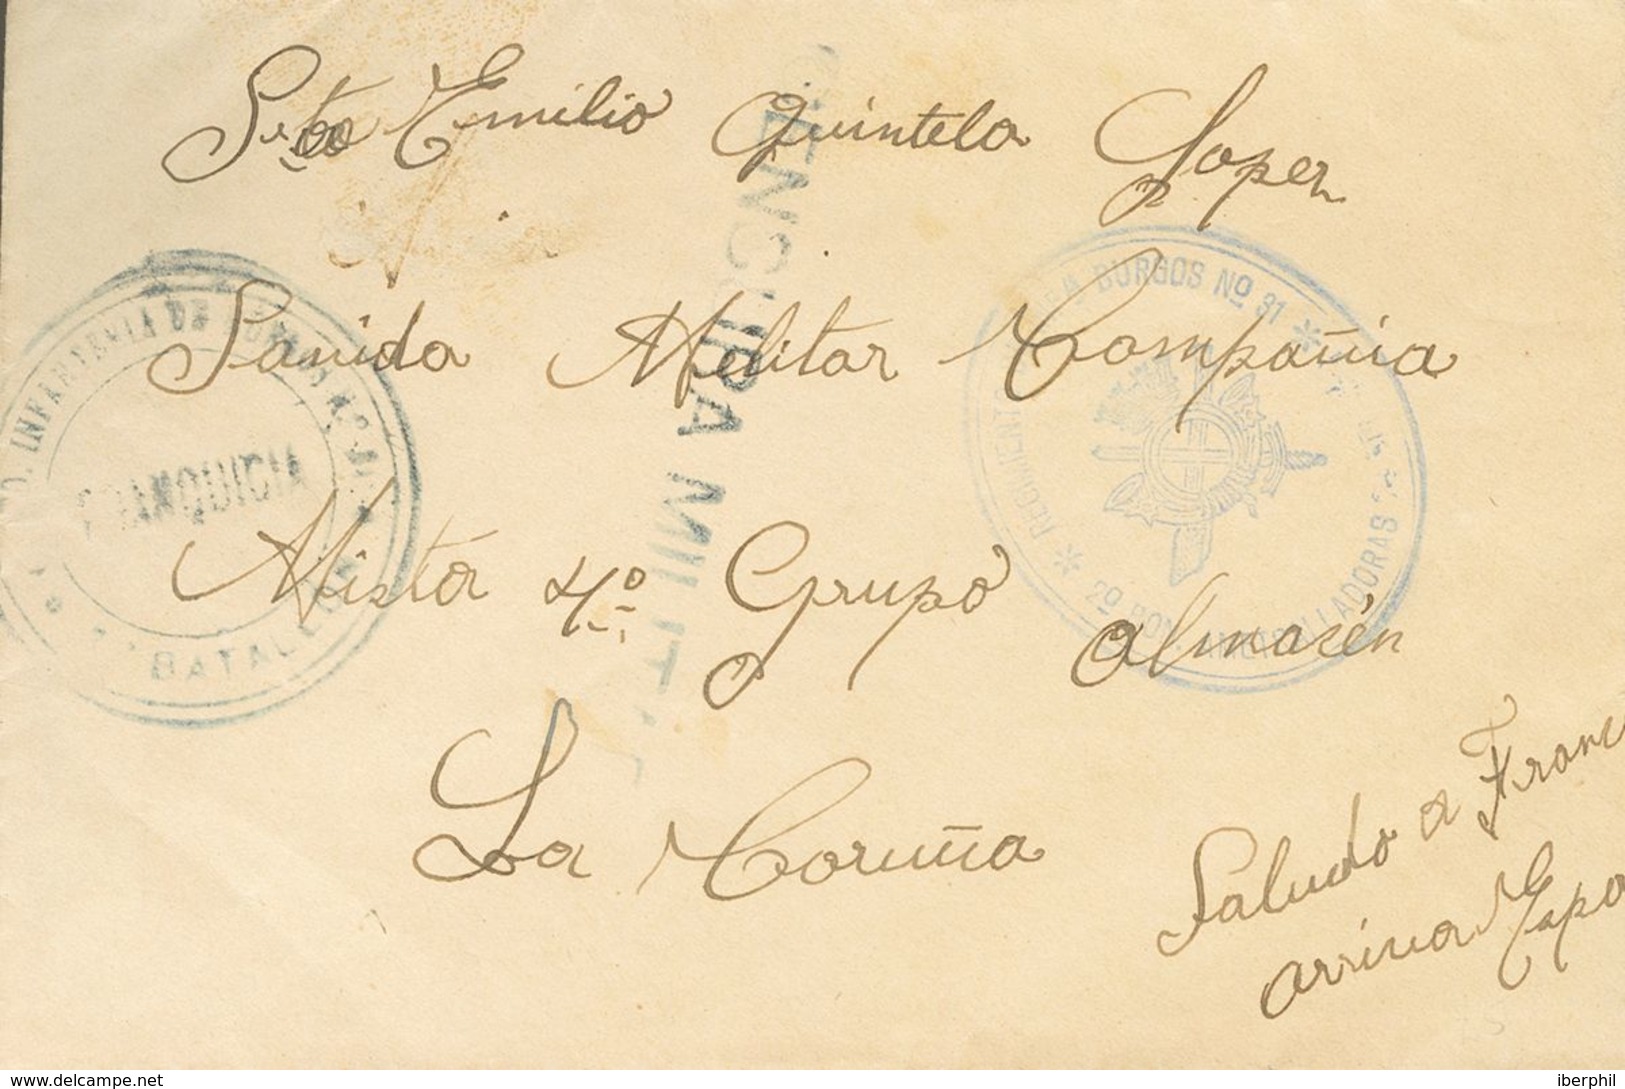 Emilio Quintela Loper
Sanida Melitar Compañia
Mixta 4º Grupo
Almasén
La Coruña
Saludo a Franc
arriva Espa
INFANTERIA DE
FRANQUICIA
BATALLON
CENSURA MILITAR
BURGOS Nº 31
2º BON. AMETRALLADORAS
delcampe.net
iberphil